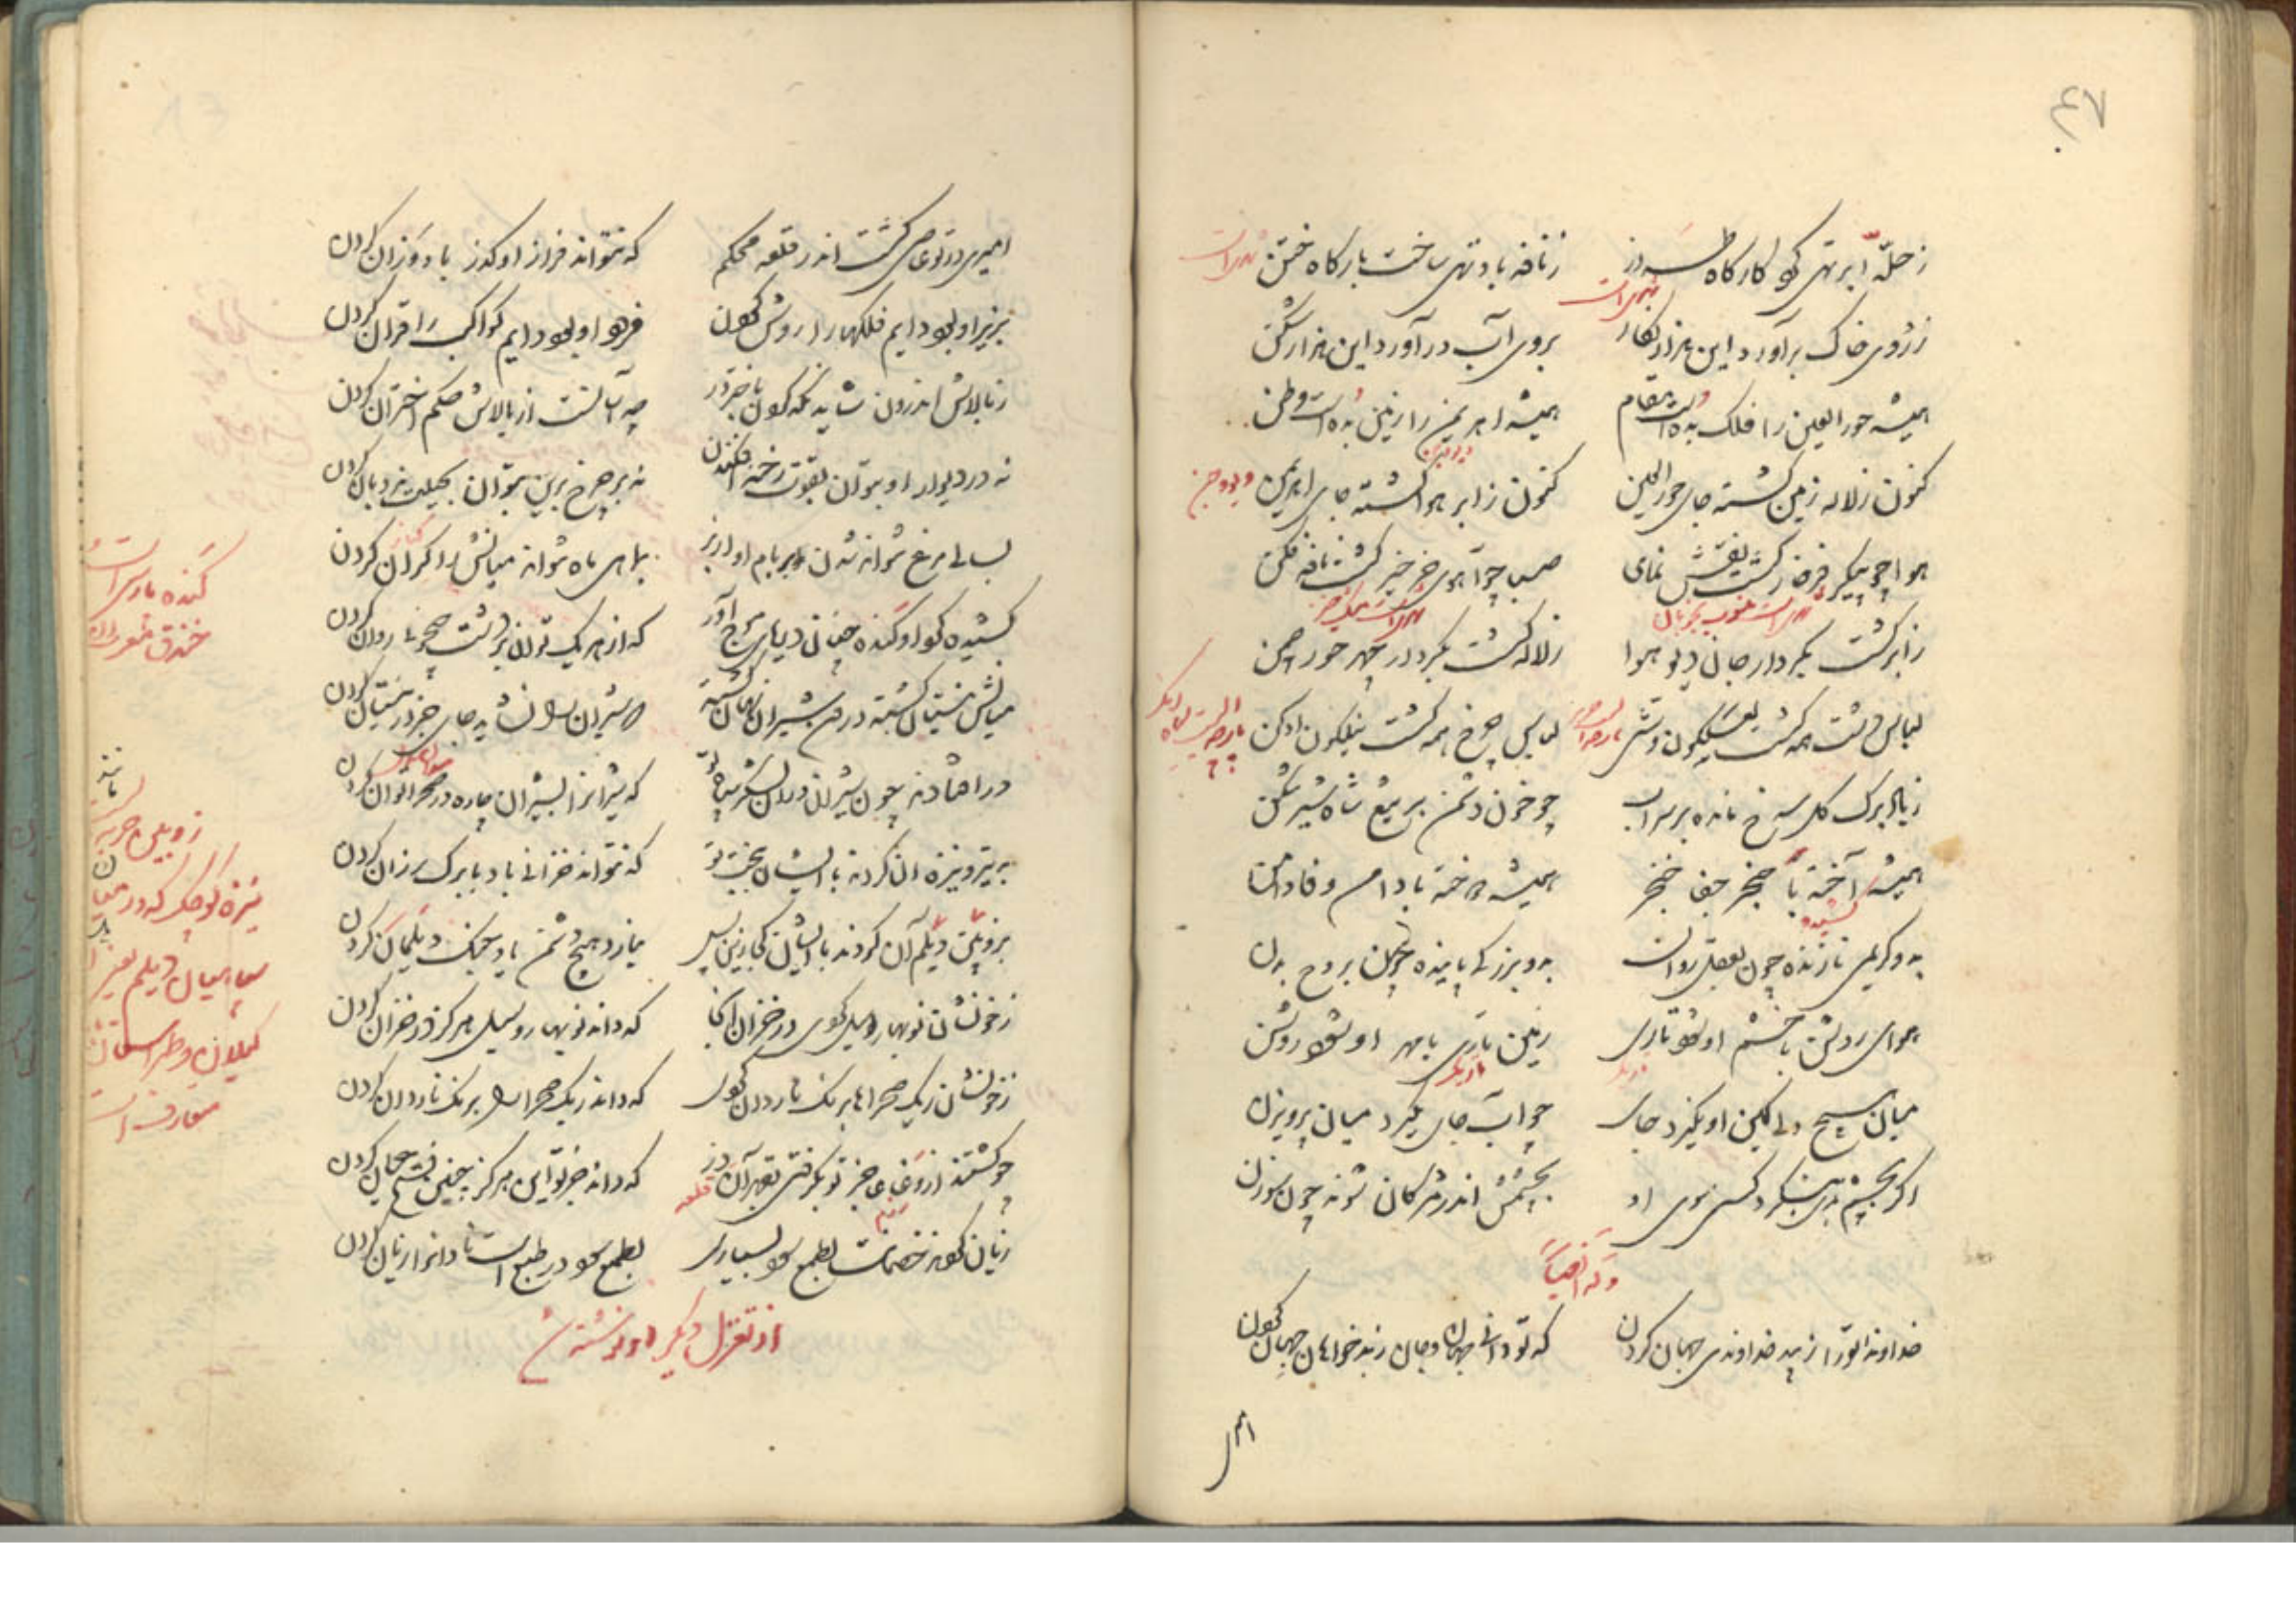 ۴۷
ز حلّه ابر تهی کرد کارگاه طراز
ز نافه باد تهی ساخت بارگاه ختن
ز روی خاک برآورد این هزار نگار
بروی آب درآورد این هزار شکن
همیشه حورالعین را فلک بده است مقام
همیشه اهریمن را زمین بده است وطن
کنون ز لاله زمین گشته جای حورالعین
کنون ز ابر هوا گشته جای اهریمن
هوا چو پیکر فرخار گشت نقش نمای
صبا چو آهوی خرخیز گشت نافه فکن
ز ابر گشت بکردار جان دیو هوا
ز لاله گشت بکردار چهر حور چمن
لباس دشت همه گشت نیلگون وشی
لباس چرخ همه گشت نیلگون ادکن
ز ژاله برگ گل سرخ مانده بر سر آب
چو خون دشمن بر تیغ شاه شیرشکن
همیشه آخته با خنجر جفا خنجر
همیشه دوخته با دامن وفا دامن
بدو کریمی نازنده چون بعقل روان
بدو بزرگی پاینده چون بروح بدن
هوای روشن با خشم او شود تاری
زمین تاری با مهر او شود روشن
میان سیخ ولی کین او نگیرد جای
چو آب جای نگیرد میان پرویزن
اگر بچشم بدی بنگرد کسی سوی او
بچشمش اندر مژگان شوند چون سوزن
وله ایضاً
خداوندا تو را زیبد خداوندی جهان کردن
که تو دانی جهان و جان زبدخواهان جهان کردن
امیری در تو عاصی گشت اندر قلعه محکم
که نتواند فراز او گذر باد وزان کردن
بزیر او بود دایم فلکها را روش کردن
فرود او بود دایم کواکب را قران کردن
ز بالاش اندرون شاید نگه کردن باختر در
چه آبست از بالاش حکم اختران کردن
نه در دیوار او بتوان بقوت رخنه افکندن
نه بر چرخ برین بتوان بحیلت نردبان کردن
بسالی مرغ نتواند شدن بر بام او از بر
بماهی ماه نتواند میانش را کران کردن
کشیده گرد او کنده چنان دریای موج آور
که از هر یک توان در دشت جیحونی روان کردن
میانش نیستان گشته درو شیران نهان گشته
که شیران را نشاید جای جز در نیستان کردن
در افتادند چون شیران دران لشکر سپاه تو
که شیران را بشیران چاره در صحرا توان کردن
به تیر و نیزه آن کردند با ایشان ببخت تو
که نتواند خزانی باد با برگ رزان کردن
بزوبین دیلم آن کردند با ایشان کجا زین پس
نیارد هیچ دشمن یاد جنگ دیلمان کردن
ز خونشان نوبهار و سیل کردی در خزان آنجا
که داند نوبهار و سیل هرگز در خزان کردن
ز خونشان ریگ صحراها برنگ ناردان کردی
که داند ریگ صحرا را برنگ ناردان کردن
چو گشتند از وغا عاجز تو بگرفتی بقهر آن دز
که داند جز تو این هرگز چنین فتح جهان کردن
زیان کردند خصمانت بطمع سود بسیاری
بطمع سود در طبع است نادان را زیان کردن
از تغزل دیگر او نوشته شد
کنده پارسی است
خندق معرب آن
زوبین حربه
نیزه کوچک که در میان
سپاهیان دیلم
گیلان و طبرستان
متعارف است